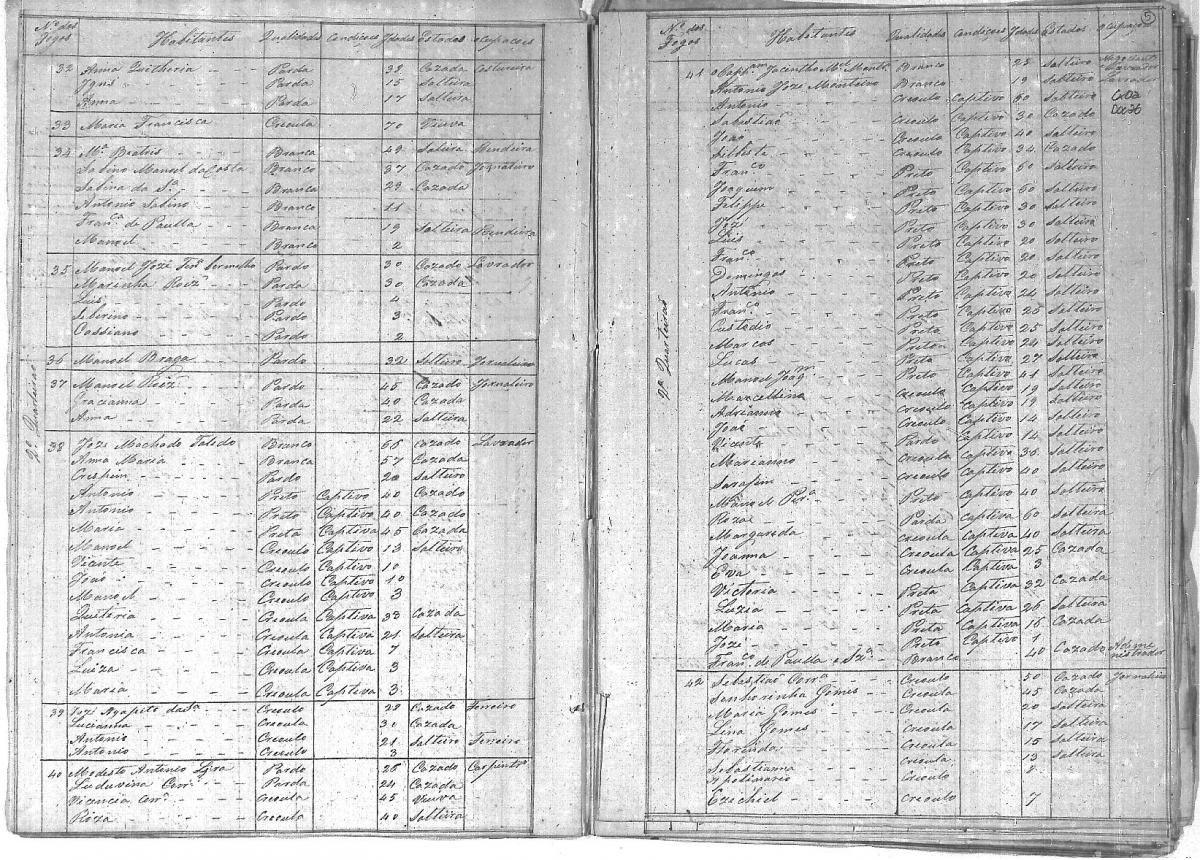 Nos. dos Fogos Habitantes Qualidades Condiçoes Jdades Estados ocupacoes
32 Anna Quitheria Parda 38 Cazada Costureira
Ignes Parda 15 Salteira
Anna Parda 17 Salteira
33 Maria Francisca Creoula 70 Viuva
34 Ma. Beatris Branca 49 Salteira Rendeira
Sabino Manoel da Costa Branco 37 Cazado Jornaleiro
Sabina da Sa. Branca 29 Cazada
Antonio Sabino Branco 11
Franca. de Paulla Branca 19 Salteira Rendeira
Manoel Branco 2
35 Manoel Jozé Vermelho Pardo 30 Cazado Lavrador
Marinha Roiz Parda 30 Cazada
Luis Pardo 4
Seberino Pardo 3
Cassiano Pardo 2
36 Manoel Braga Pardo 32 Salteiro Jornaleiro
37 Manoel Roiz Pardo 45 Cazado Jornaleiro
Gracianna Parda 40 Cazada
Anna Parda 22 Salteira
2º Quarteirão
38 Jozé Machado Toledo Branco 66 Cazado Lavrador
Anna Maria Branca 57 Cazada
Crespim Pardo 20 Salteiro
Antonio Preto Captivo 40 Cazado
Antonio Preto Captivo 40 Cazado
Maria Preta Captiva 45 Cazada
Manoel Creoulo Captivo 13 Salteiro
Vicente Creoulo Captivo 10
João Creoulo Captivo 10
Manoel Creoulo Captivo 3
Quiteria Creoula Captiva 33 Cazada
Antonia Creoula Captiva 21 Salteira
Francisca Creoula Captiva 7
Luiza Creoula Captiva 3
Maria Creoula Captiva 3
39 Jozé Agapito da Sa. Creoulo 28 Cazado Ferreiro
Lucianna Creoula 30 Cazada
Antonio Creoulo 21 Salteiro Ferreiro
Antonio Creoulo 3
40 Modesto Antonio Lira Pardo 26 Cazado Carpintro.
Luduvina Corra. Parda 24 Cazada
Vicencia Corra. Creoula 45 Viuva
Roza Creoula 40 Salteira
5
Nos. dos Fogos Habitantes Qualidades Condiçoes Jdades Estados ocupaçoes
41 o Cappam. Jacintho Mel. Montro. Branco 28 Salteiro Negociante Lavrador
Antonio Jozé Monteiro Branco 19 Salteiro Lavrador
Antonio Creoulo Captivo 60 Salteiro
Sabastião Creoulo Captivo 30 Cazado
João Creoulo Captivo 40 Salteiro
Creoulo Captivo 34 Cazado
Franco. Preto Captivo 60 Salteiro
Joaquim Preto Captivo 60 Salteiro
Felippe Preto Captivo 30 Salteiro
Jozé Preto Captivo 30 Salteiro
Luis Preto Captivo 20 Salteiro
Franco. Preto Captivo 20 Salteiro
Domingos Preto Captivo 20 Salteiro
Antonio Preto Captivo 24 Salteiro
Franco. Preto Captivo 26 Salteiro
Custodio Preto Captivo 25 Salteiro
Marcos Preto Captivo 24 Salteiro
Lucas Preto Captivo 27 Salteiro
Manoel Joaqm. Preto Captivo 41 Salteiro
Marcellino Creoulo Captivo 19 Salteiro
Adrianno Creoulo Captivo 19 Salteiro
João Creoulo Captivo 14 Salteiro
Vicente Pardo Captivo 14 Salteiro
Marianno Creoulo Captivo 36 Salteiro
Sarafim Creoulo Captivo 40 Salteiro
Manoel Pera. Preto Captivo 40 Salteiro
Roza Parda Captiva 60 Salteira
Margarida Creoula Captiva 40 Salteira
Joanna Creoula Captiva 25 Cazada
Eva Creoula Captiva 3
Victoria Preta Captiva 32 Cazada
Luzia Preta Captiva 26 Salteira
Maria Preta Captiva 16 Cazada
Jozé Preto Captivo 1
Franco. de Paulla e Sza. Branco 40 Cazado Administrador
2º Quarteirão
42 Sebastião Corra. Creoulo 50 Cazado Jornaleiro
Senhorinha Gomes Creoula 45 Cazada
Maria Gomes 20 Salteira
Lina Gomes Creoula 17 Salteira
Florinda Creoula 15 Salteira
Sebastianna Creoula 13 Salteira
Apolinario Creoulo 8
Ezichiel Creoulo 7